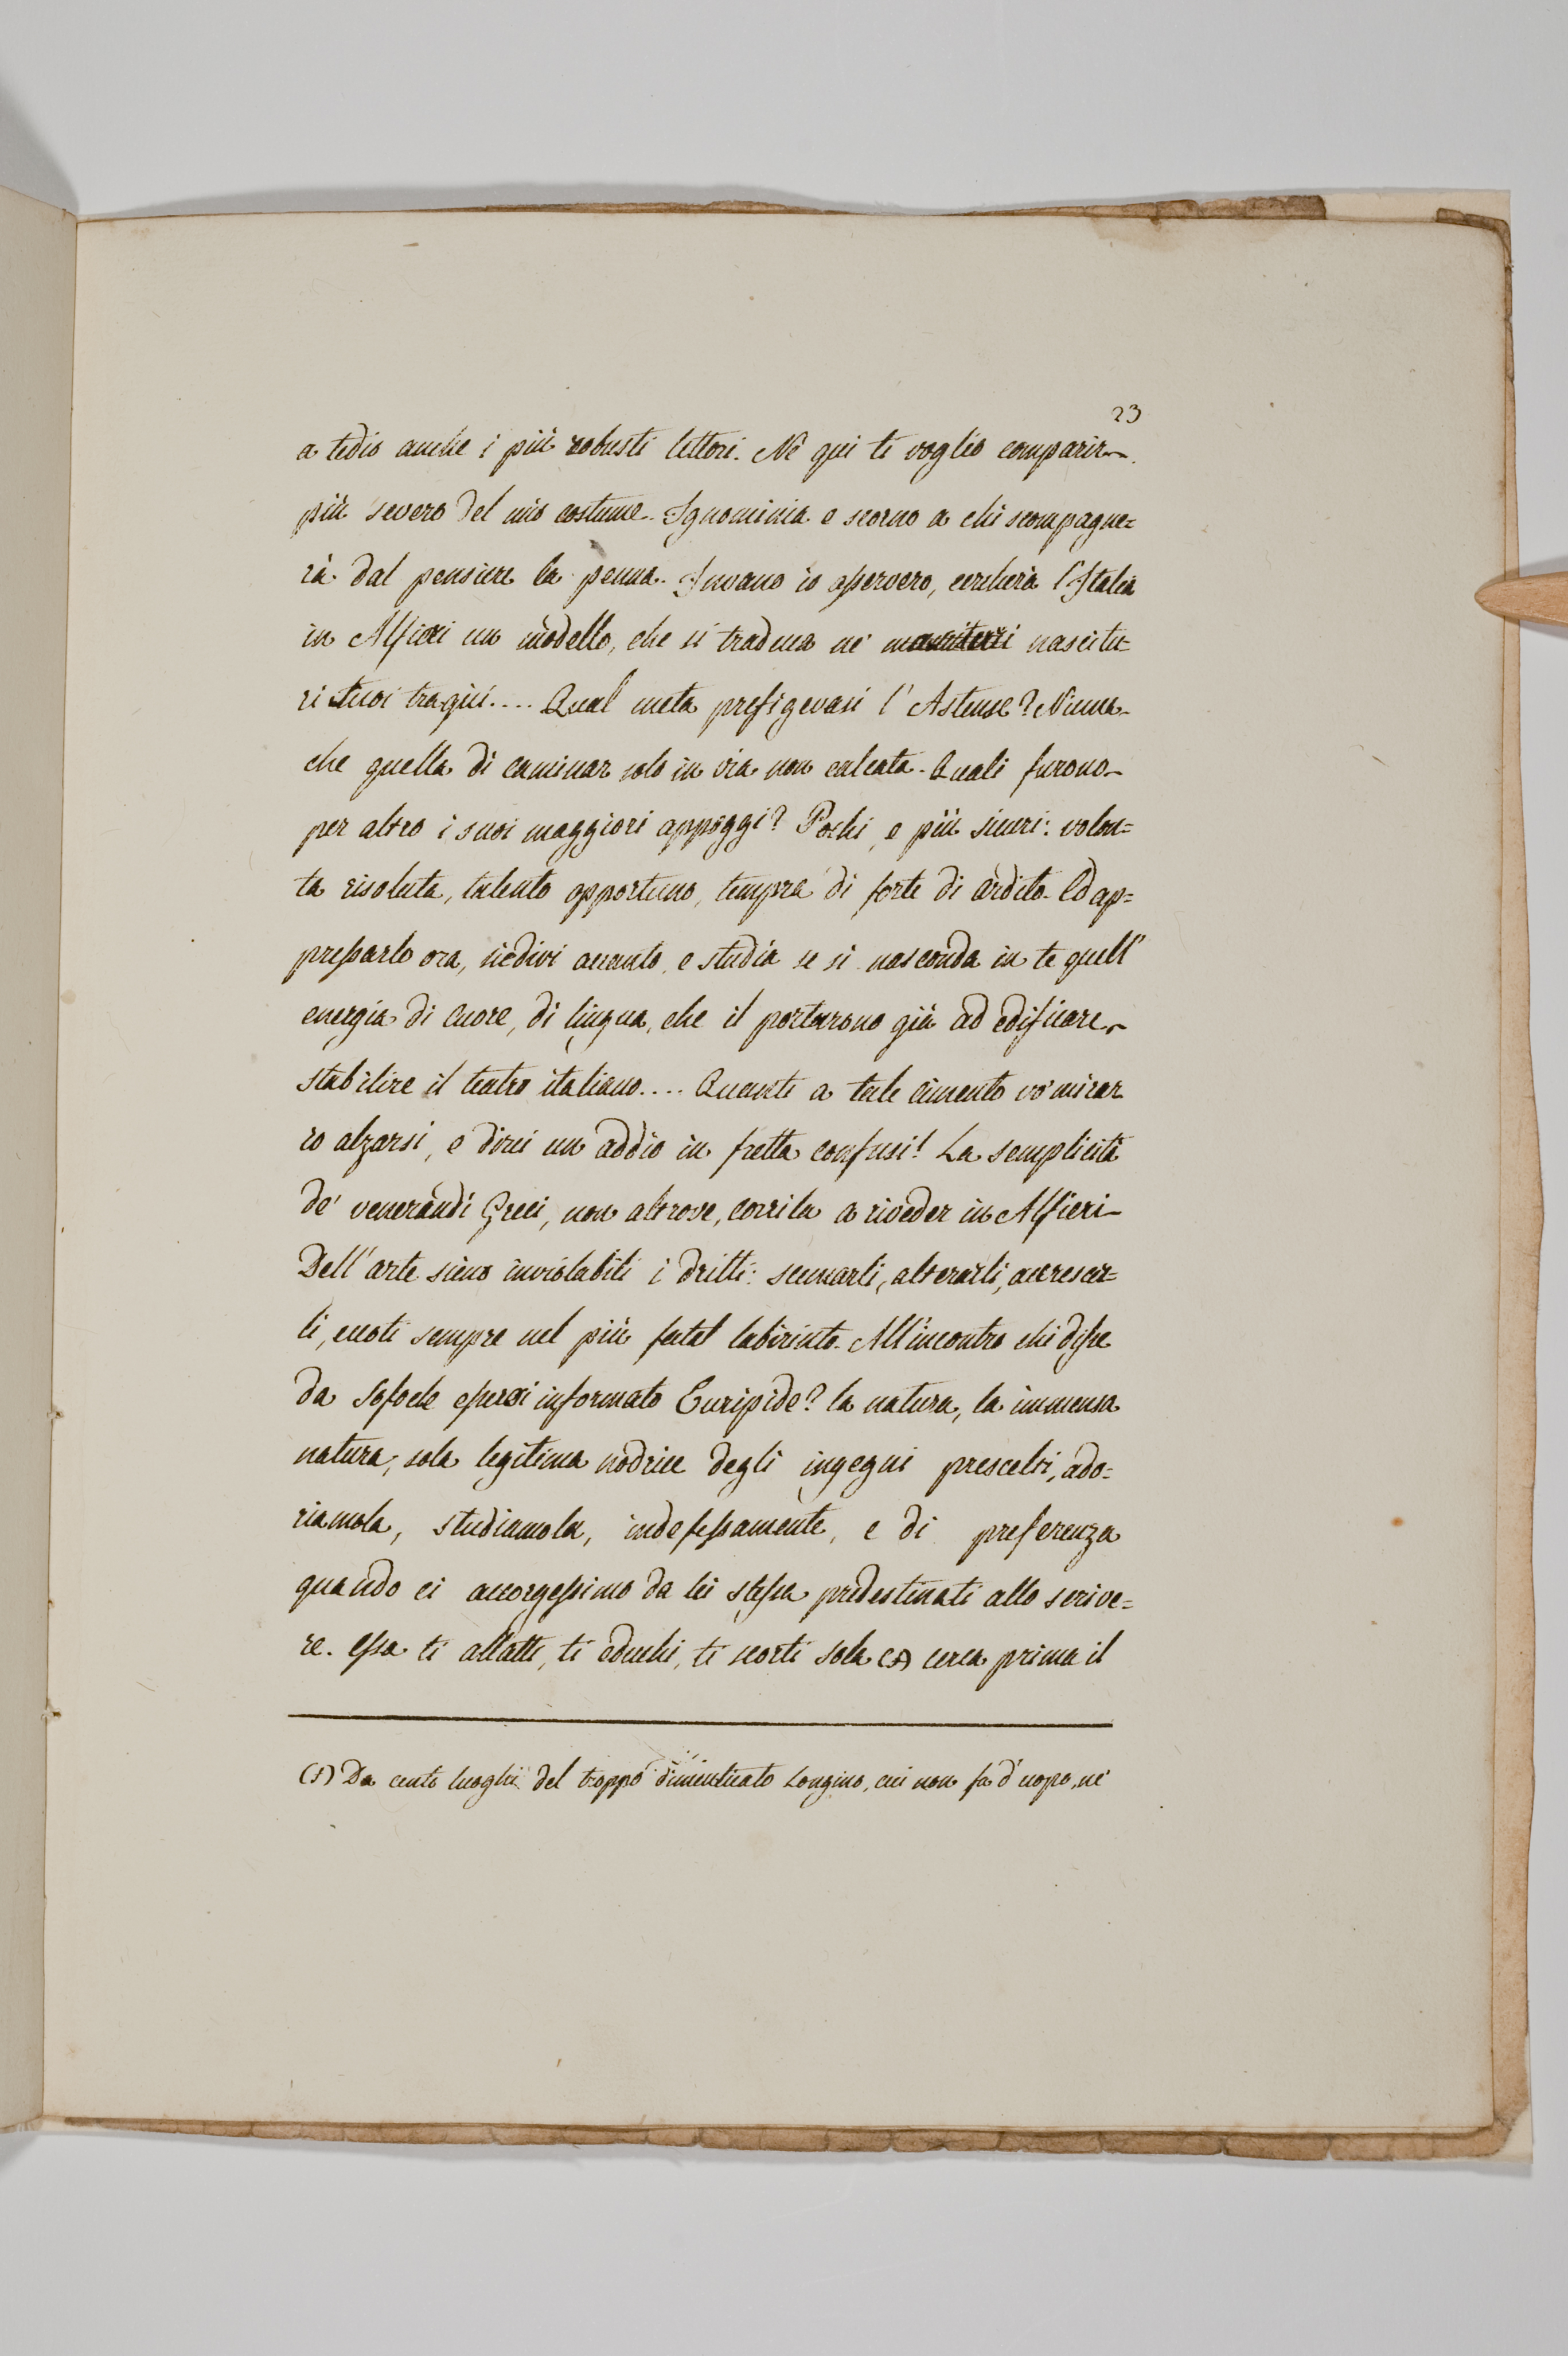 23
a tedio anche i più robusti lettori. Nè qui ti voglio comparir
più severo del mio costume. Ignominia e scorno a chi scompagne=
rà dal pensiere la penna. Invano io osservero, cercherà l'Italia
in Alfieri un modello, che si traduca ne' nascitu=
ri suoi tragici.... Qual meta prefigevasi l'Astense? Niuna
che quella di caminar solo in via non calcata. Quali furono
per altro i suoi maggiori appoggi? Pochi, e più sicuri: volon=
ta risoluta, talento opportuno, tempra di forte di ardito. Ed ap=
pressarlo ora, siedivi accanto, e studia se si nasconda in te quell'
energia di cuore, di lingua, che il portarono già ad edificare
stabilire il teatro italiano.... Quanti a tale cimento vo' mirar
io alzarsi, e dirci un addio in fretta confusi! La semplicità
de' venerandi Greci, non altrove, corrila a riveder in Alfieri
Dell'arte sieno inviolabili i dritti: scemarli, alterarli, accrescer=
li, ecoti sempre nel più fatal labirinto. All'incontro chi disse
da Sofocle essersi informato Euripide? la natura, la immensa
natura, sola legitima nodrice degli ingegni prescelti, ado=
riamola, studiamola, indefessamente, e di preferenza
quando ci accorgessimo da lei stessa predestinati allo scrive=
re. Essa ti allatti, ti educhi, ti scorti sola (1) cerca prima il
(1) Da cento luoghi del troppo dimenticato Longino, cui non fa d'uopo, nè